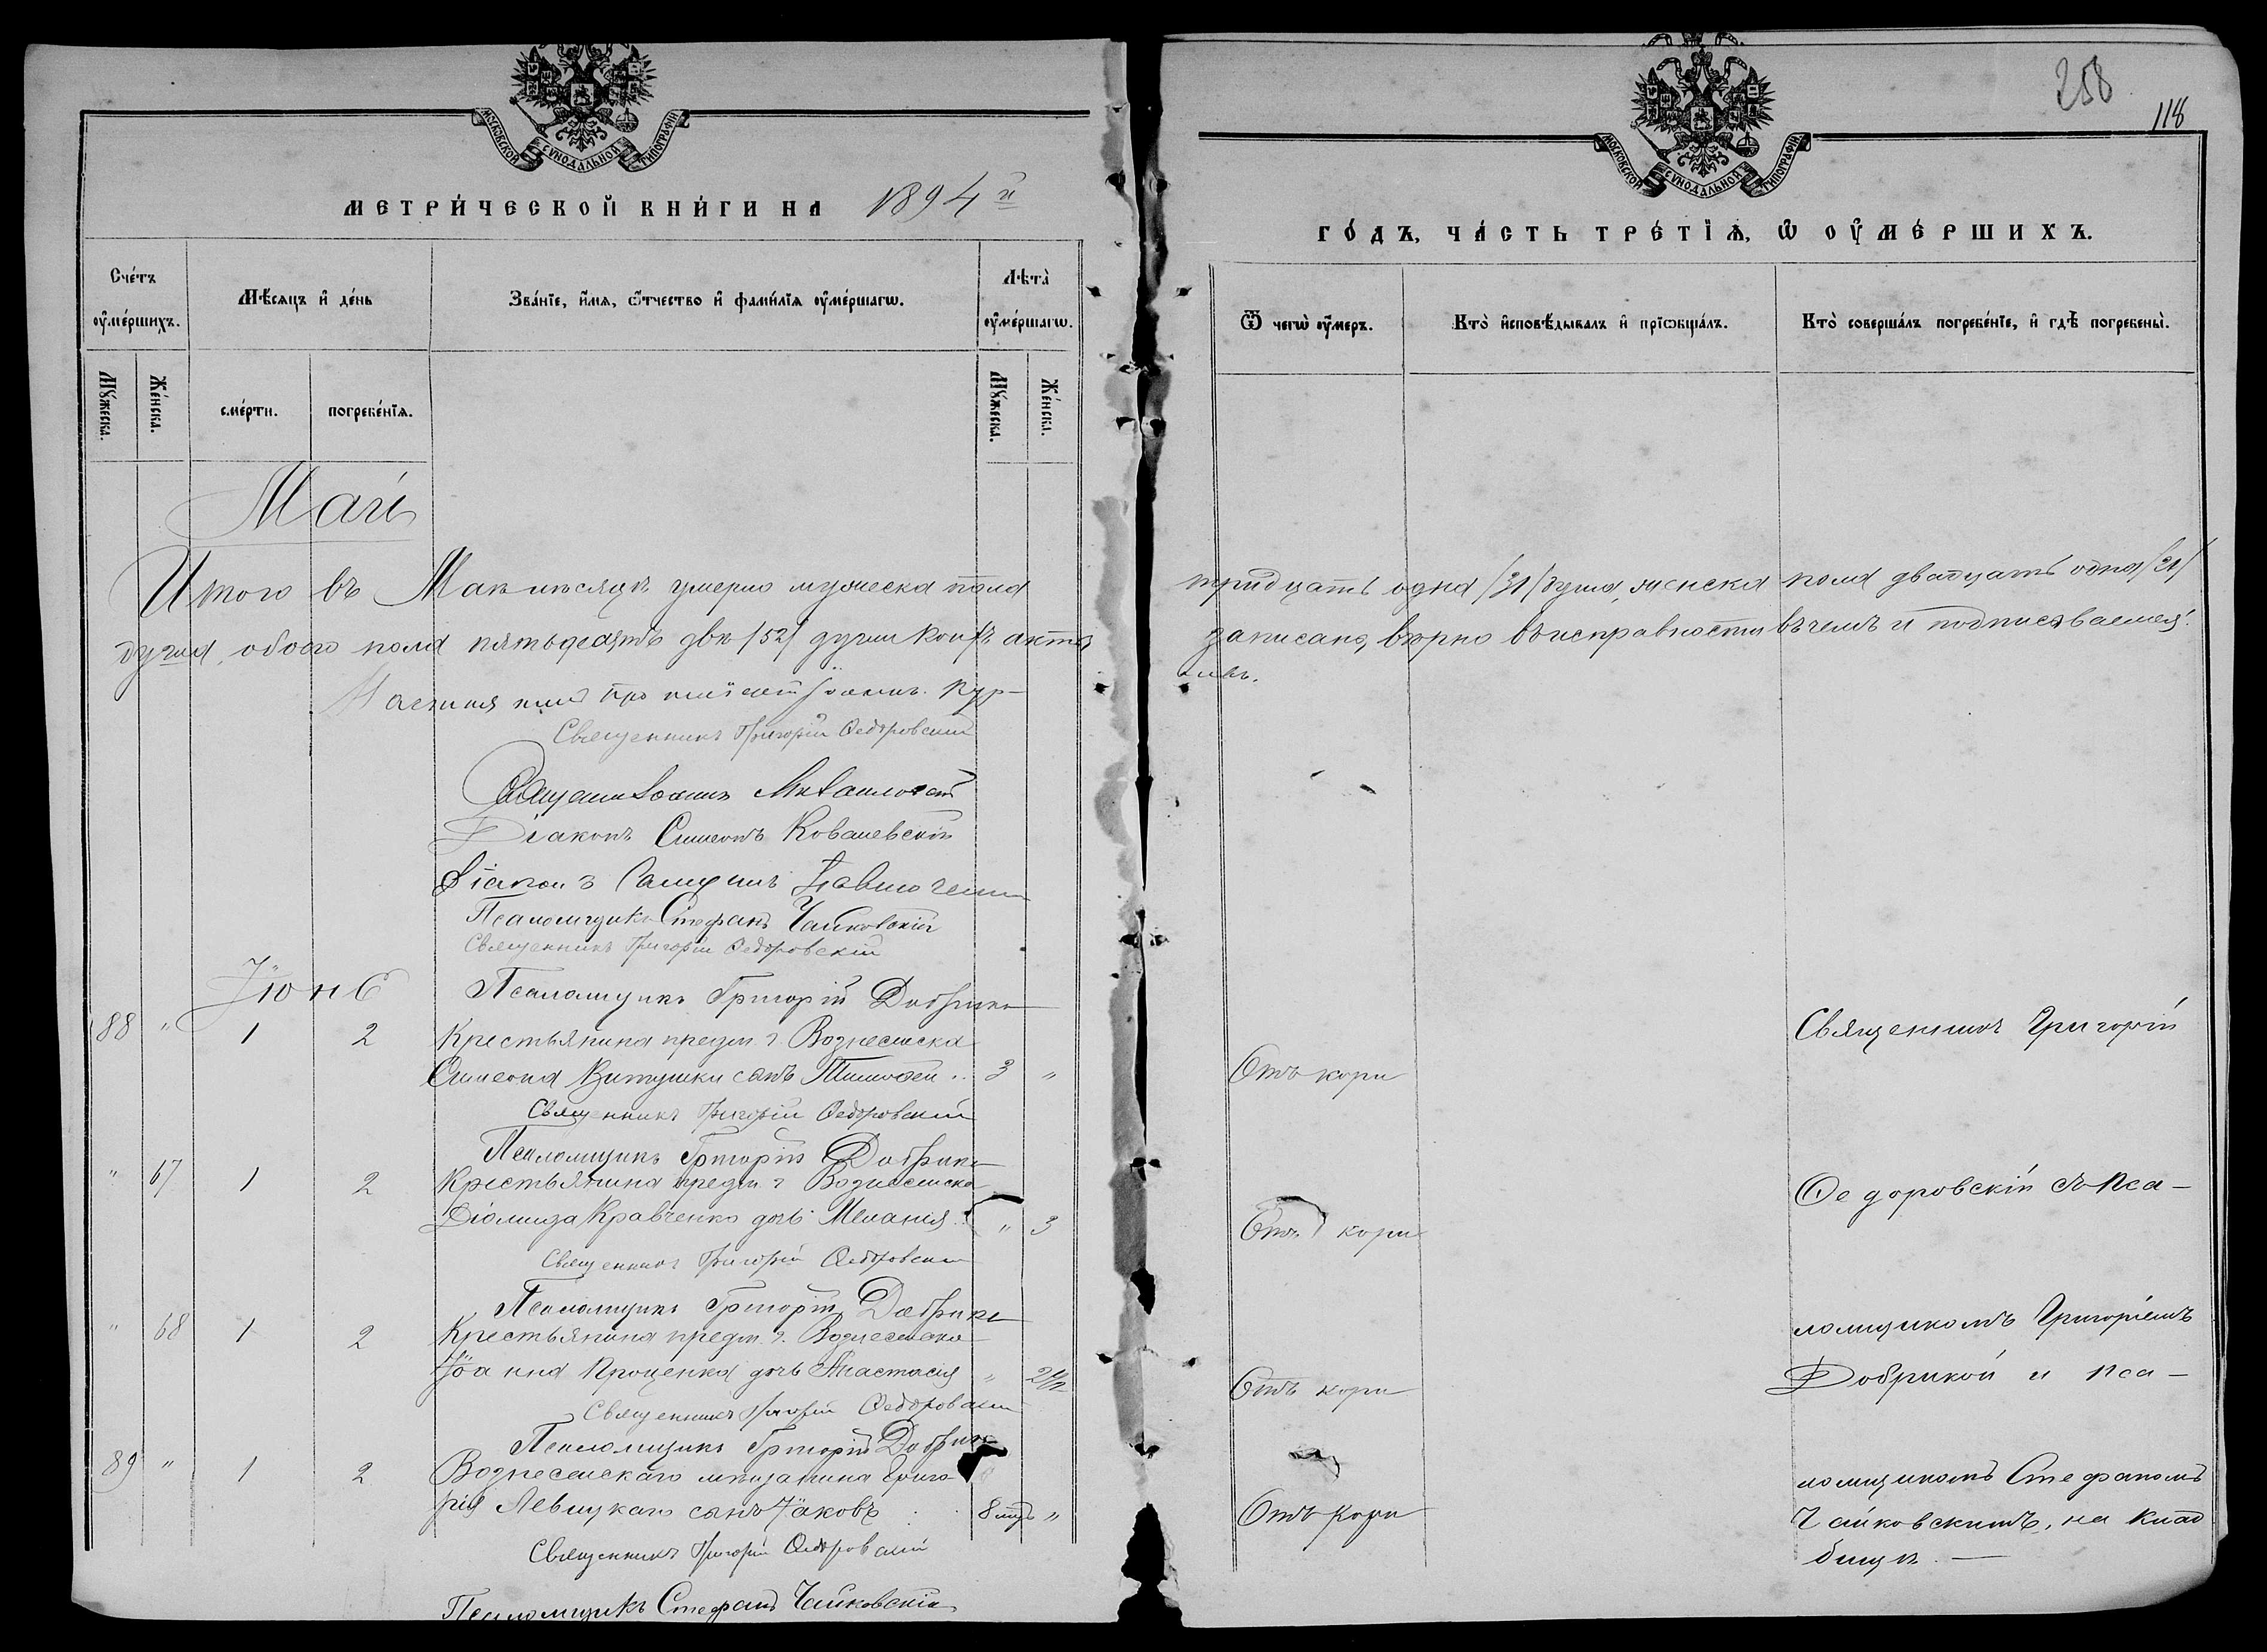 МОСКОВСКОЙ СѴНОДАЛЬНОЙ ТИПОГРАФІИ
МЕТРИ́ЧЕСКОЙ КНИ́ГИ НА 1894 й
Сче́тъ оу҆ме́ршихъ.
Мѣ́сяцъ и҆ де́нь
Зва́нїе, и҆́мѧ, ѻ҆́тчество и҆ фами́лїѧ оу҆ме́ршагѡ.
Лѣ́та оу҆ме́ршагѡ.
Мꙋ́жеска.
Же́нска.
сме́рти.
погребе́нїѧ.
Мꙋ́жеска.
Же́нска.
Май
Итого въ Маѣ мѣсяцѣ умерло мужеска пола
душа, обоего пола пятьдесятъ двѣ /52/ души
Священникъ Григорій Ѳедоровскій
Діаконъ Симеонъ Ковалевскій
Діаконъ
Псаломщикъ Стефанъ Чайковскій
Священникъ Григорій Ѳедоровскій
Іюнь
Псаломщикъ Григорій Добрика
88 " 1 2 Крестьянина предм. г. Вознесенска
Симеона сынъ Тимофей 3 "
Священникъ Григорій Ѳедоровскій
Псаломщикъ Григорій Добрика
" 67 1 2 Крестьянина предм. г. Вознесенска
Діомида Кравченко дочь Меланія " 3
Священникъ Григорій Ѳедоровскій
Псаломщикъ Григорій Добрика
" 68 1 2 Крестьянина предм. г. Вознесенска
Іоанна Проценка дочь Анастасія " 2½
Священникъ Григорій Ѳедоровскій
Псаломщикъ Григорій Добрика
89 " 1 2 Вознесенскаго мѣщанина Григо
рія Левицкаго сынъ Іаковъ 8 мцъ "
Священникъ Григорій Ѳедоровскій
Псаломщикъ Стефанъ Чайковскій
258
118
МОСКОВСКОЙ СѴНОДАЛЬНОЙ ТИПОГРАФІИ
ГО́ДЪ, ЧА́СТЬ ТРЕ́ТЇѦ, Ѡ҆ ОУ҆МЕ́РШИХЪ.
Ѿ чегѡ̀ оу҆́меръ.
Кто̀ и҆сповѣ́дывалъ и҆ прїѡбща́лъ.
Кто̀ соверша́лъ погребе́нїе, и҆ гдѣ̀ погребены̀.
тридцать одна /31/ душа, женска пола двадцать одна /21/
записано, вѣрно въ исправности въ чемъ и подписываемся:
Священникъ Григорій
Отъ кори
Ѳедоровскій съ пса-
Отъ кори
ломщикомъ Григоріемъ
Отъ кори Добрикой и пса-
ломщикомъ Стефаномъ
Отъ кори Чайковскимъ, на клад
бищѣ. —